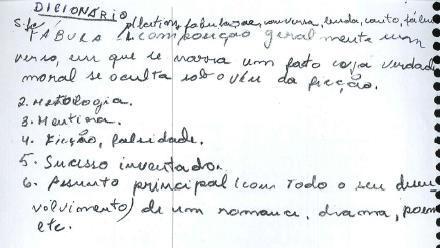 DICIONÁRIO
S. fe fabulazione, conversa, lenda, conto, fábula
FÁBULA 1. composição geralmente um
verso, em que se narra um fato cuja verdade
moral se oculta sob o véu da ficção.
2. Mitologia.
3. Mentira.
4. Ficção, falsidade.
5. Sucesso inventado.
6. Assunto principal (com todo o seu desen
volvimento) de um romance, drama, poem
etc.